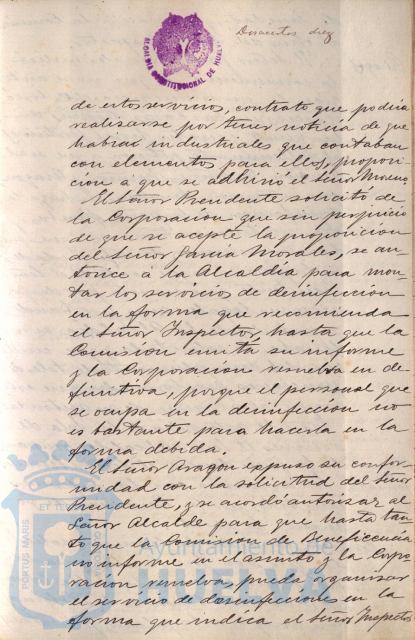 Doscientos diez
ALCALDÍA CONSTITUCIONAL DE HUELVA
de estos servicios, contrato que podria
realizarse por tener noticia de que
habian industriales que contaban
con elementos para ello, proposi-
cion á que se adhirió el Señor Moreno.
El Señor Presidente solicitó de
la Corporacion que sin perjuicio
de que se acepte la proposicion
del Señor Garcia Morales, se au-
torice á la Alcaldía para mon-
tar los servicios de desinfeccion
en la forma que recomienda
el Señor Inspector, hasta que la
Comision emita su informe
y la Corporacion resuelva en de-
finitiva, porque el personal que
se ocupa en la desinfeccion no
es bastante para hacerla en la
forma debida.
El Señor Aragon expuso su confor-
midad con la solicitud del Señor
Presidente, y se acordó autorizar al
Señor Alcalde para que hasta tan-
to que la Comision de Beneficencia
no informe en el asunto y la Corpo-
racion resuelva pueda organizar
el servicio de desinfeccion en la
forma que indica el Señor Inspector
PORTUS MARIS
Ayuntamiento de
HUELVA